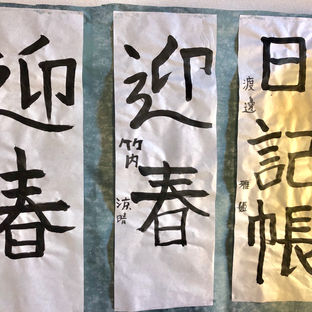 日記帳
渡邉
雅
迎春
竹内
涼晴
迎春